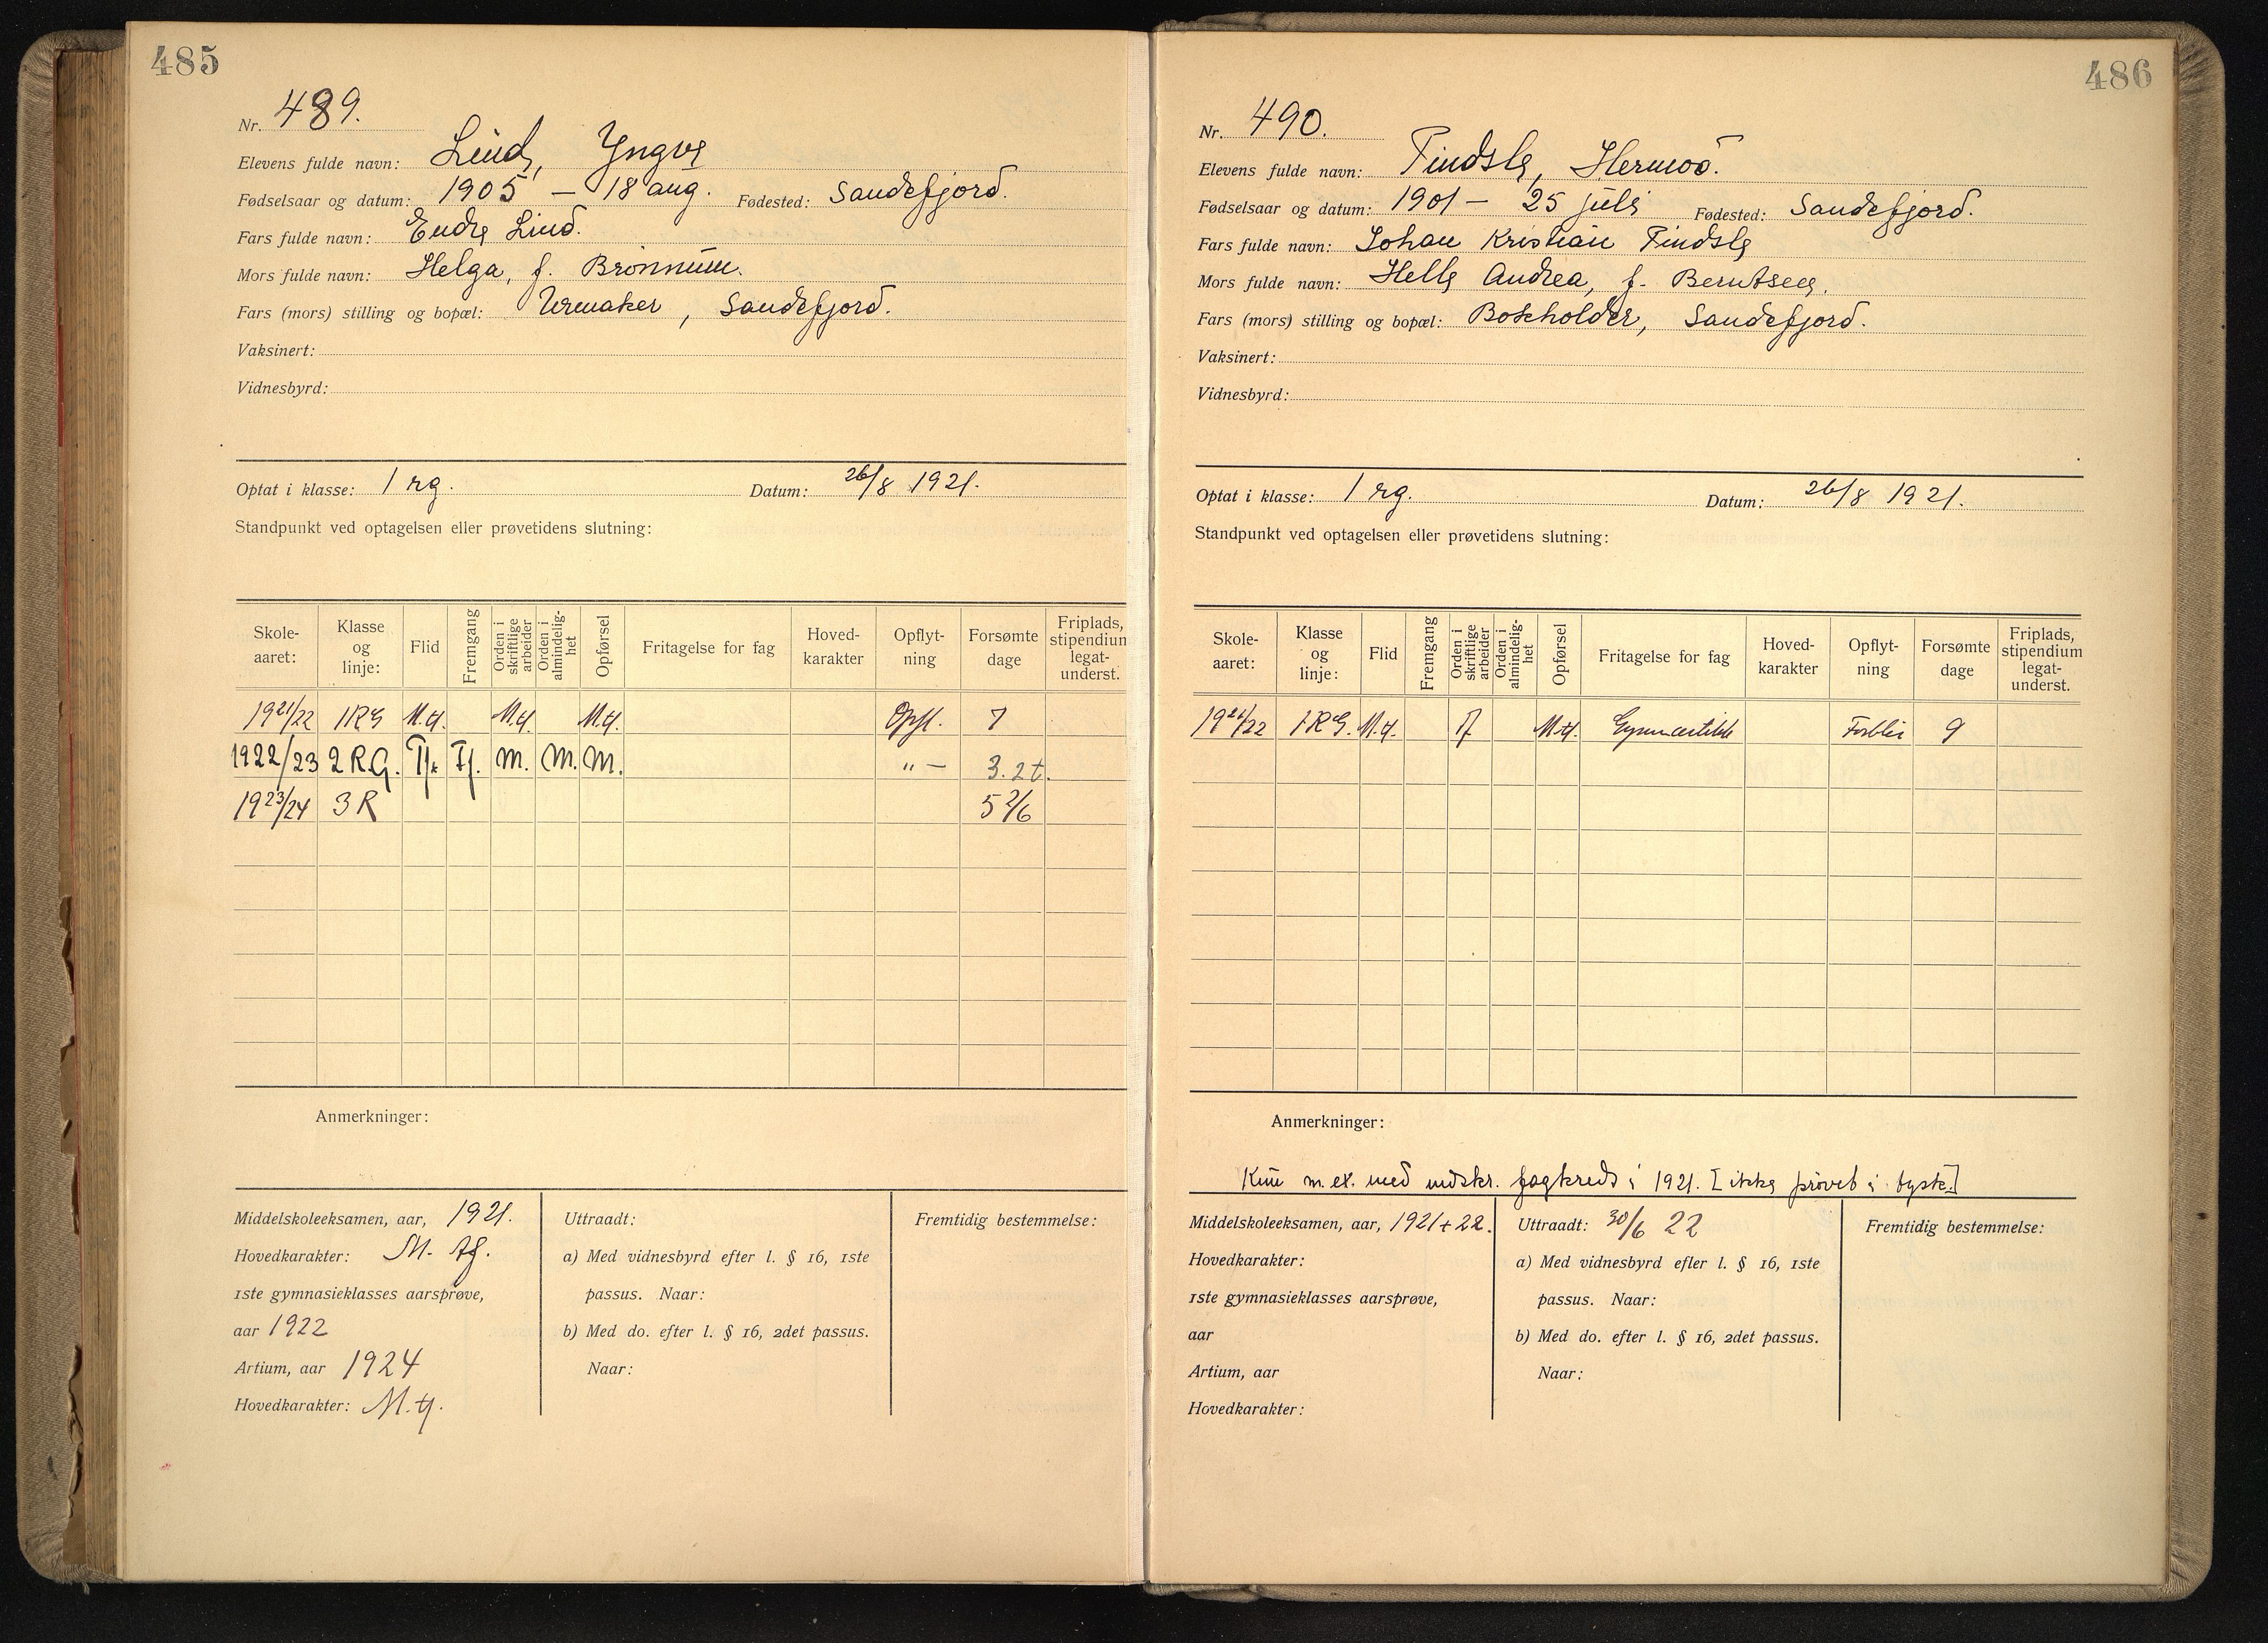 485
Nr. 489.
Elevens fulde navn: Lind, Yngve
Fødselsaar og datum: 1905 — 18 aug. Fødested: Sandefjord.
Fars fulde navn: Endre Lind.
Mors fulde navn: Helga, f. Brønnum.
Fars (mors) stilling og bopæl: Urmaker, Sandefjord.
Vaksinert:
Vidnesbyrd:
Optat i klasse: 1 rg. Datum: 26/8 1921.
Standpunkt ved optagelsen eller prøvetidens slutning:
Skole-aaret: Klasse og linje: Flid Fremgang Orden i skriftlige arbeider Orden i almindelig-het Opførsel Fritagelse for fag Hoved-karakter Opflyt-ning Forsømte dage Friplads, stipendium legat-underst.
1921/22 1RG M.tf. M.tf. M.tf. Opfl. 7
1922/23 2 R.G. Tf. Tf. M. M. M. " — 3. 2t.
1923/24 3 R 5 2/6
Anmerkninger:
Middelskoleeksamen, aar, 1921. Uttraadt: Fremtidig bestemmelse:
Hovedkarakter: M. tf. a) Med vidnesbyrd efter l. § 16, 1ste
1ste gymnasieklasses aarsprøve, passus. Naar:
aar 1922 b) Med do. efter l. § 16, 2det passus.
Artium, aar 1924 Naar:
Hovedkarakter: M. tf.
486
Nr. 490.
Elevens fulde navn: Tindsle, Hermod.
Fødselsaar og datum: 1901 — 25 juli Fødested: Sandefjord.
Fars fulde navn: Johan Kristian Tindsle
Mors fulde navn: Helle Andrea, f. Berntsen.
Fars (mors) stilling og bopæl: Bokholder, Sandefjord.
Vaksinert:
Vidnesbyrd:
Optat i klasse: 1 rg. Datum: 26/8 1921.
Standpunkt ved optagelsen eller prøvetidens slutning:
Skole-aaret: Klasse og linje: Flid Fremgang Orden i skriftlige arbeider Orden i almindelig-het Opførsel Fritagelse for fag Hoved-karakter Opflyt-ning Forsømte dage Friplads, stipendium legat-underst.
1921/22 1RG. M.tf. Tf M.tf. Gymnastikk Forblir 9
Anmerkninger:
Kun m.ex. med indskr. fagkreds i 1921. [ikke prøvet i tysk.]
Middelskoleeksamen, aar, 1921 + 22. Uttraadt: 30/6 22 Fremtidig bestemmelse:
Hovedkarakter: a) Med vidnesbyrd efler l. § 16, 1ste
1ste gymnasieklasses aarsprøve, passus. Naar:
aar b) Med do. efter l. § 16, 2det passus.
Artium, aar Naar:
Hovedkarakter: